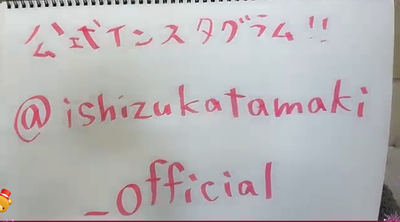 公式インスタグラム!!
@ishizukatamaki
_official